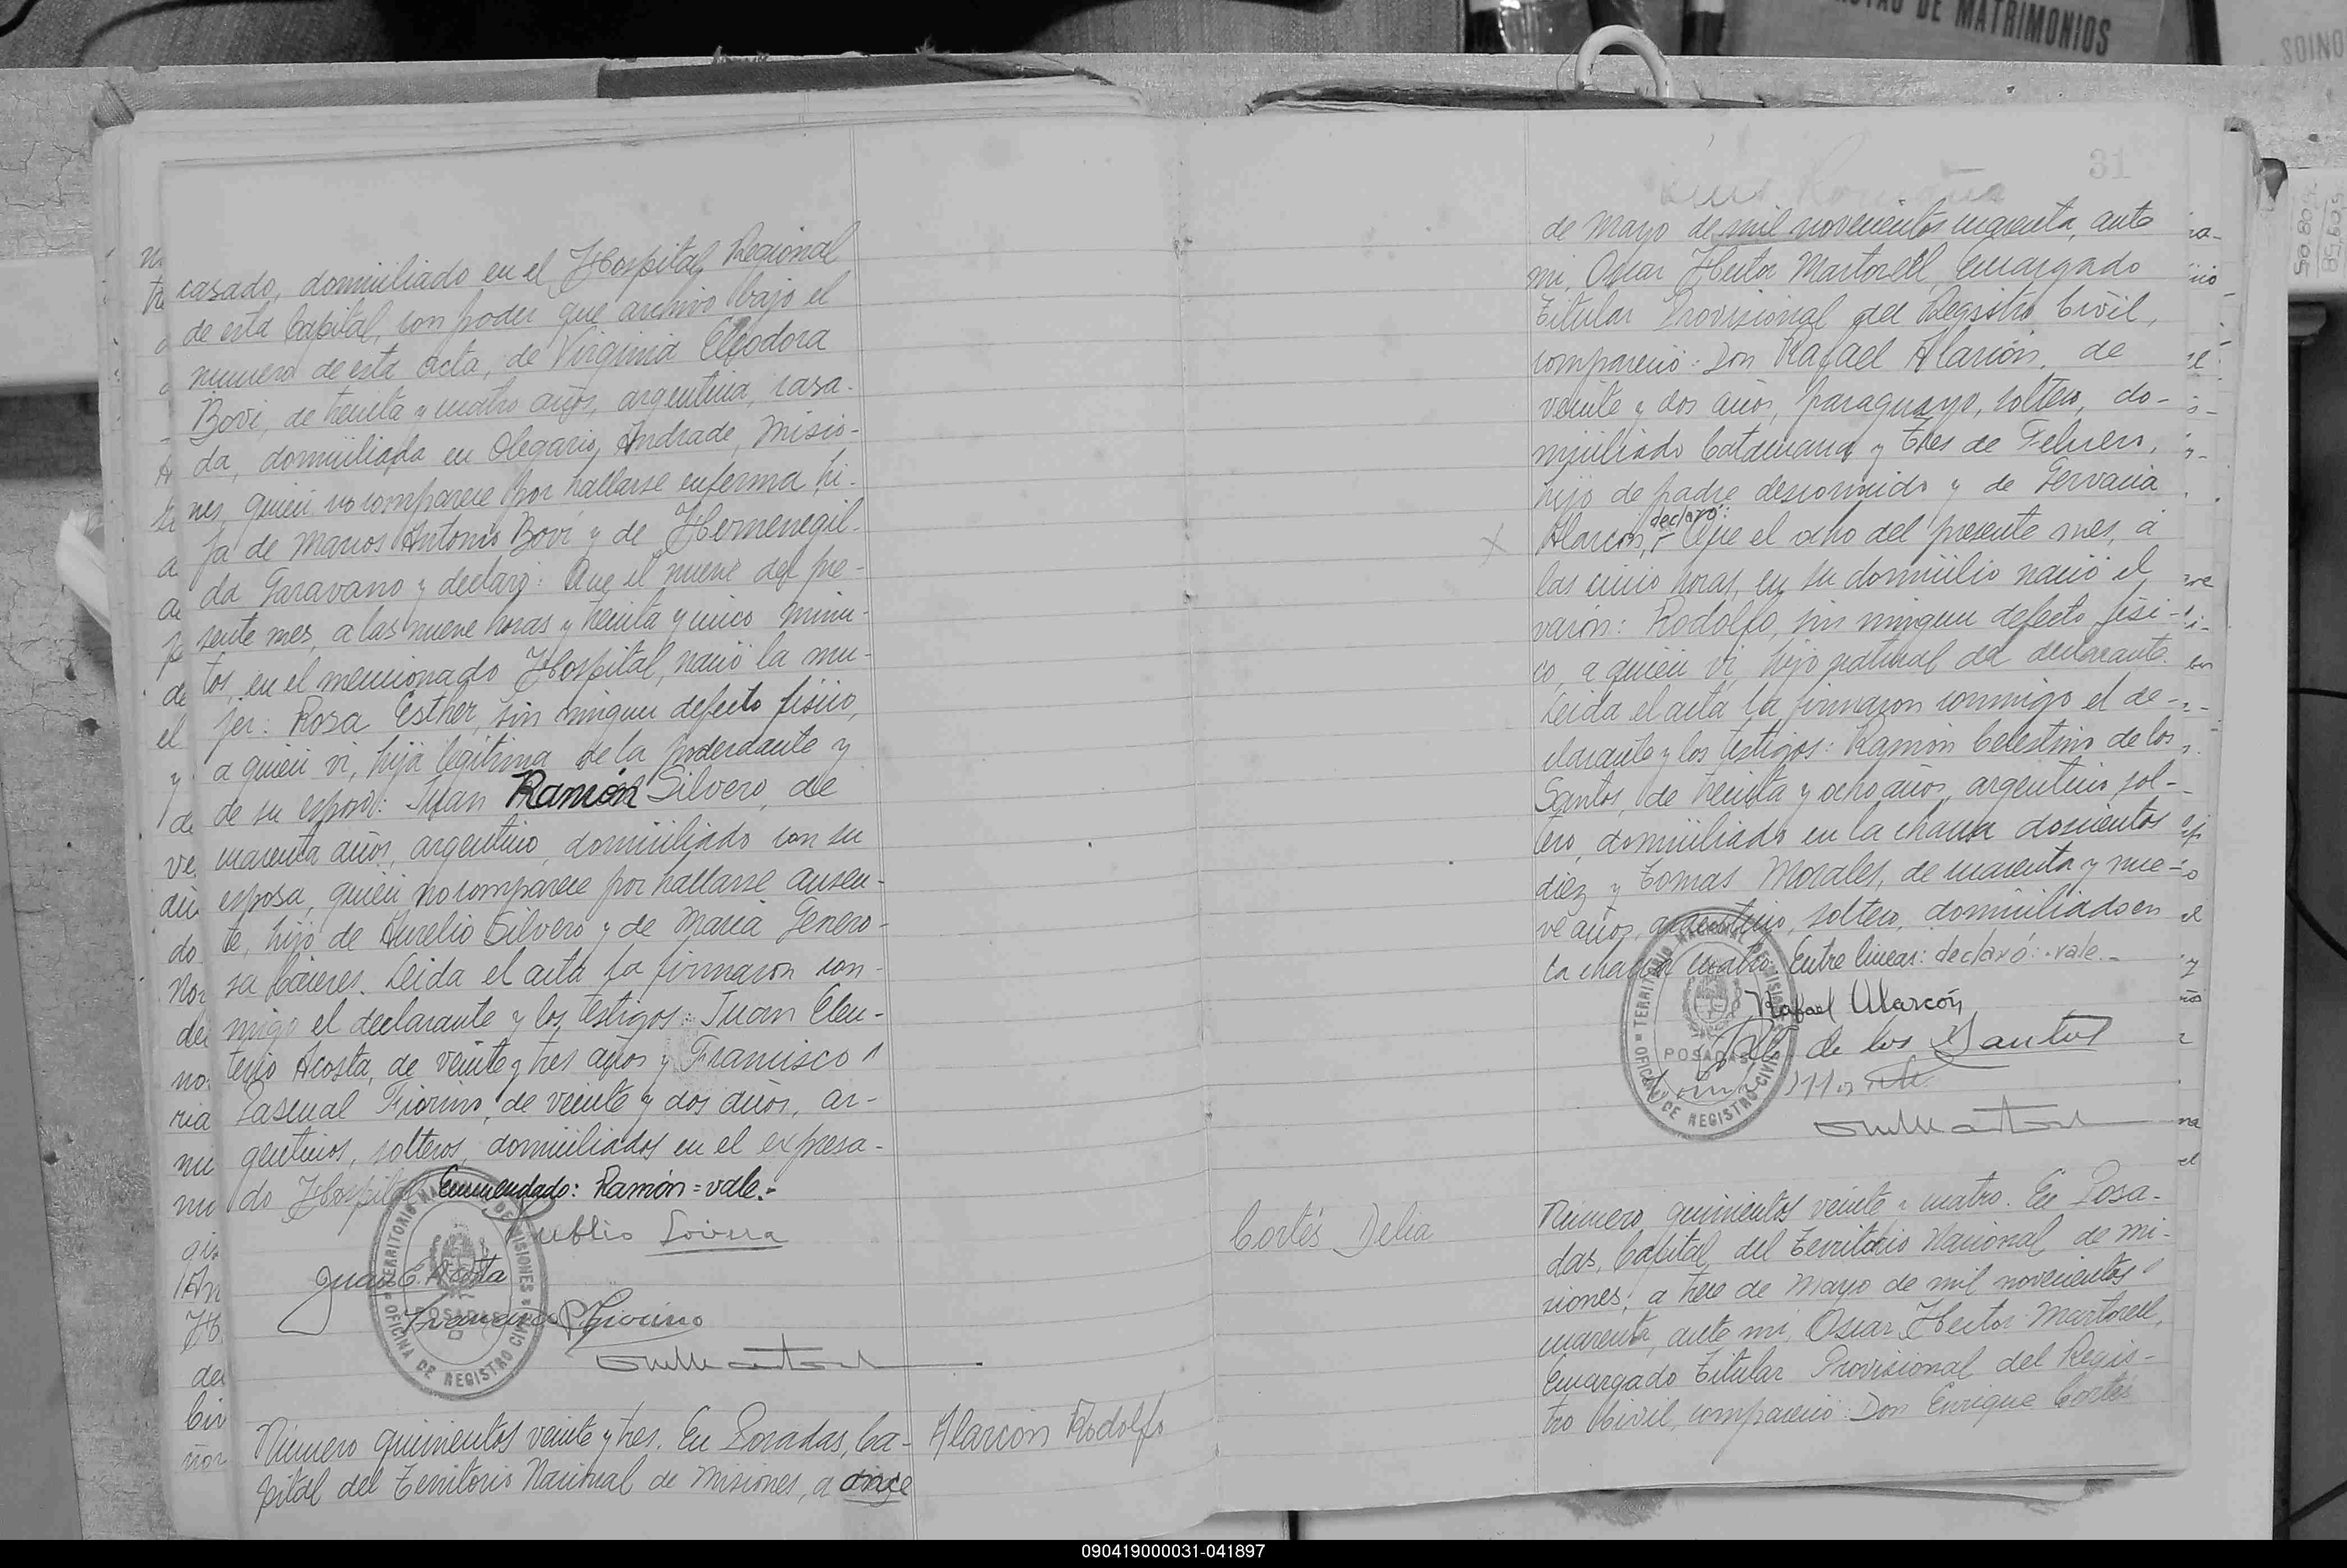 TAS DE MATRIMONIOS
casado, domiciliado en el Hospital Regional
de esta Capital, con poder que archivo bajo el
numero de esta acta, de Virginia Eleodora
Bovi, de treinta y cuatro años, argentina, casa-
da, domiciliada en Olegario, Andrade, Misio-
nes, quien no comparece por hallarse enferma, hi-
ja de Marcos Antonio Bovi y de Hermenegil-
da Garavano y declaró: Que el nueve del pre-
sente mes, a las nueve horas y treinta y cinco minu-
tos, en el mencionado Hospital, nació la mu-
jer: Rosa Esther, sin ningun defecto físico,
a quien vi, hija legitima de la poderdante y
de su esposo: Juan Ramón Silvero, de
cuarenta años, argentino, domiciliado con su
esposa, quien no comparece por hallarse ausen-
te, hijo de Aurelio Silvero y de Maria Genero-
sa Cáceres. Leida el acta la firmaron con-
migo el declarante y los testigos: Juan Eleu-
terio Acosta, de veinte y tres años y Francisco
Pascual Fiorino, de veinte y dos años, ar-
gentinos, solteros, domiciliados en el expresa-
do Hospital. Enmendado: Ramón = vale.-
Juan E. Acosta
Francisco P. Fiorino
TERRITORIO NACIONAL DE MISIONES
POSADAS
OFICINA DE REGISTRO CIVIL
Numero quinientos veinte y tres. En Posadas, Ca-
pital del Territorio Nacional de Misiones, a once
Alarcón Rodolfo
31
de Mayo de mil novecientos cuarenta, ante
mi, Oscar Hector Martorell, Encargado
Titular Provisional del Registro Civil,
compareció: Don Rafael Alarcón, de
veinte y dos años, paraguayo, soltero, do-
miciliado Catamarca y Tres de Febrero,
hijo de padre desconocido y de Gervacia
declaró:
Alarcón, Que el ocho del presente mes, a
las cinco horas, en su domicilio nació el
varón: Rodolfo, sin ningun defecto físi-
co, a quien vi, hijo natural del declarante.
Leida el acta la firmaron conmigo el de-
clarante y los testigos: Ramón Celestino de los
Santos, de treinta y ocho años, argentino, sol-
tero, domiciliado en la chacra doscientos
diez y Tomas Morales, de cuarenta y nue-
ve años, argentino, soltero, domiciliado en
la chacra cuatro. Entre lineas: declaró: vale.-
Rafael Alarcón
de los Santos
TERRITORIO NACIONAL DE MISIONES
POSADAS
OFICINA DE REGISTRO CIVIL
Cortés Delia
Numero, quinientos veinte y cuatro. En Posa-
das, Capital del Territorio Nacional de Mi-
siones, a trece de Mayo de mil novecientos
cuarenta, ante mi, Oscar Hector Martorell,
Encargado Titular Provisional del Regis-
tro Civil, compareció: Don Enrique Cortés
090419000031-041897